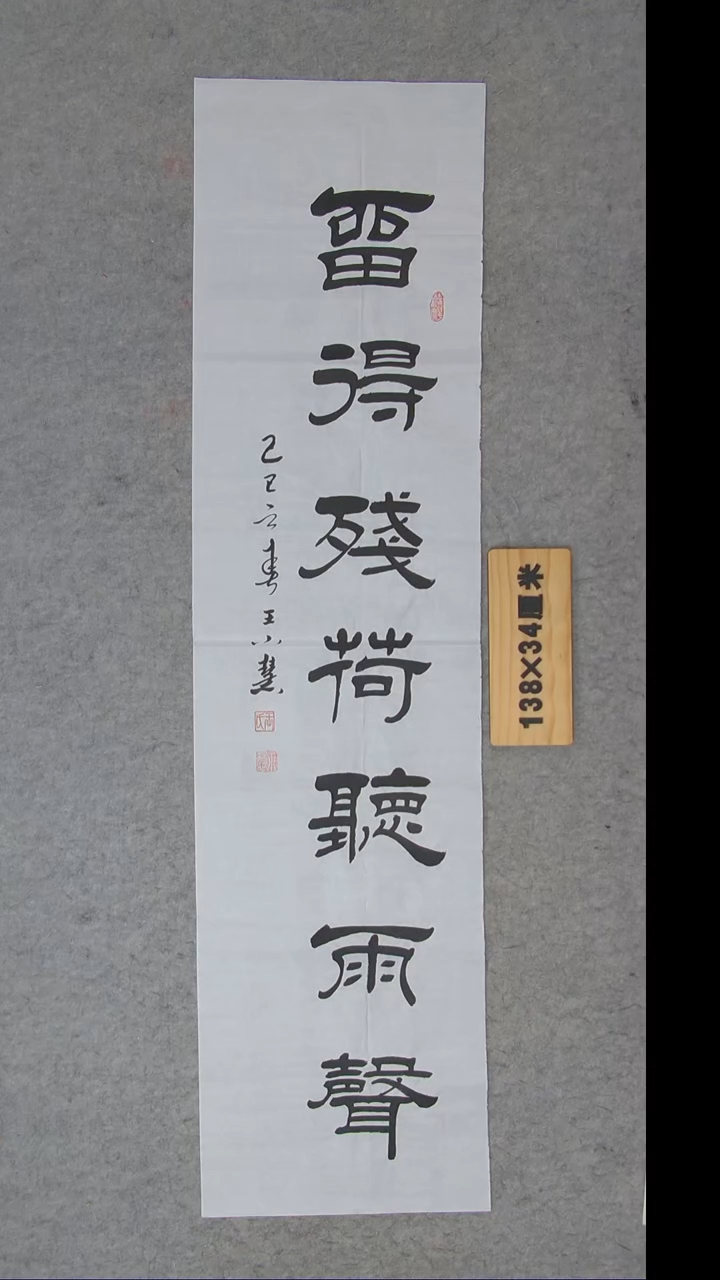 留得殘荷聽雨聲
己巳之春王小慧
138×34厘米